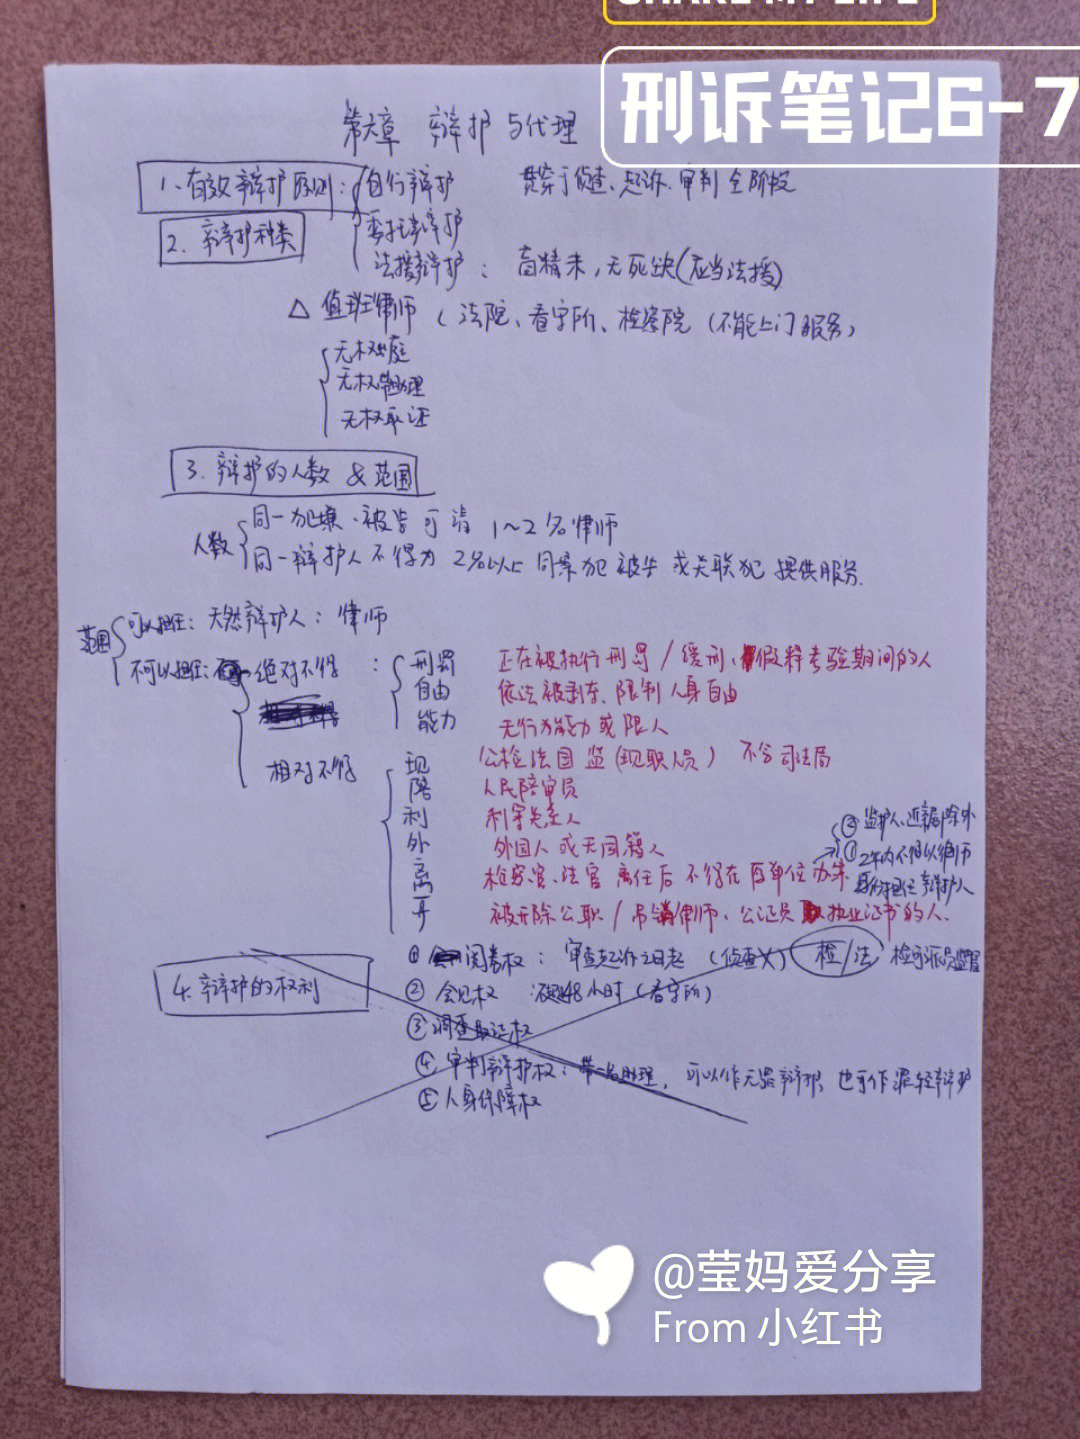 SHARE MY LIFE
刑诉笔记6-7
第六章 辩护与代理
1、有效辩护原则：自行辩护 贯穿于侦查、起诉、审判全阶段
2. 辩护种类 委托辩护
法援辩护：盲精未，无死缺(应当法援)
△ 值班律师 (法院、看守所、检察院 (不能上门服务)
无权出庭
无权带助理
无权取证
3. 辩护的人数 & 范围
人数 同一犯嫌、被告可请 1~2名律师
同一辩护人不得为2名以上同案犯被告或关联犯提供服务.
范围 可以担任：天然辩护人：律师
不可以担任： 绝对不得 ： 刑罚 正在被执行刑罚/缓刑、假释考验期间的人
自由 依法被剥夺、限制人身自由
能力 无行为能力或限人
相对不得 现 公检法国监(现职人员) 不含司法局
陪 人民陪审员
利 利害关系人
外 外国人或无国籍人
离 检察官、法官离任后不得在原单位办案
②监护人、近亲属除外
①2年内不得以律师
身份担任辩护人
开 被开除公职/吊销律师、公证员执业证书的人.
4. 辩护的权利 ① 阅卷权：审查起诉之日起 (侦查X) 检/法
② 会见权 ：48小时(看守所)
③ 调查取证权
④ 审判辩护权：带一名助理， 可以作无罪辩护，也可作罪轻辩护
⑤ 人身保障权
@莹妈爱分享
From 小红书